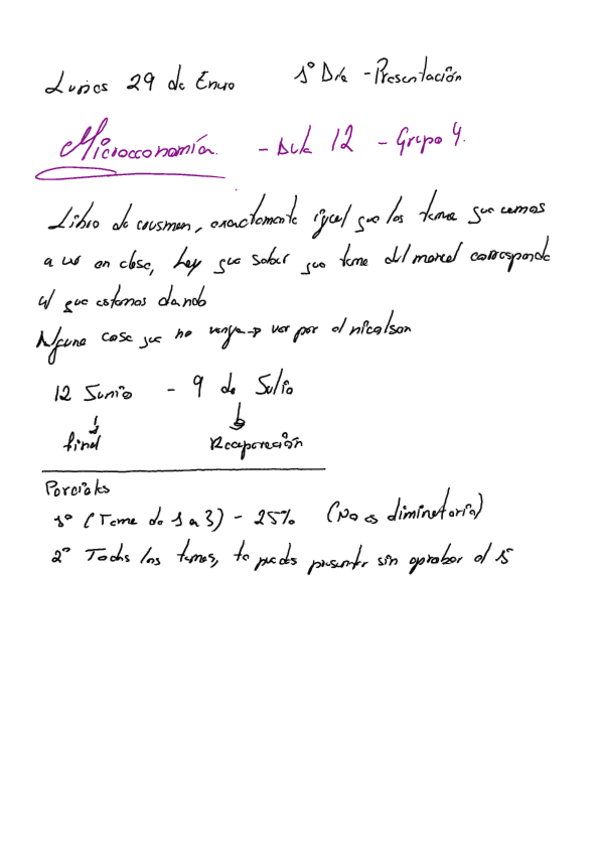 Lunes 29 de Enero 1º Día - Presentación
Microeconomía. - Aula 12 - Grupo 4.
Libro de, exactamente igual que los tema que vemos
a en clase, hay que saber que tema del manual corresponde
al que estamos dando
Alguna cosa que no venga → ver por el nicolson
12 Junio - 9 de Julio
↓ ↓
final Recuperación
Parciales
1º (Tema de 1 a 3) - 25% (No es eliminatorio)
2º Todos los temas, te puedes presentar sin aprobar el 1º